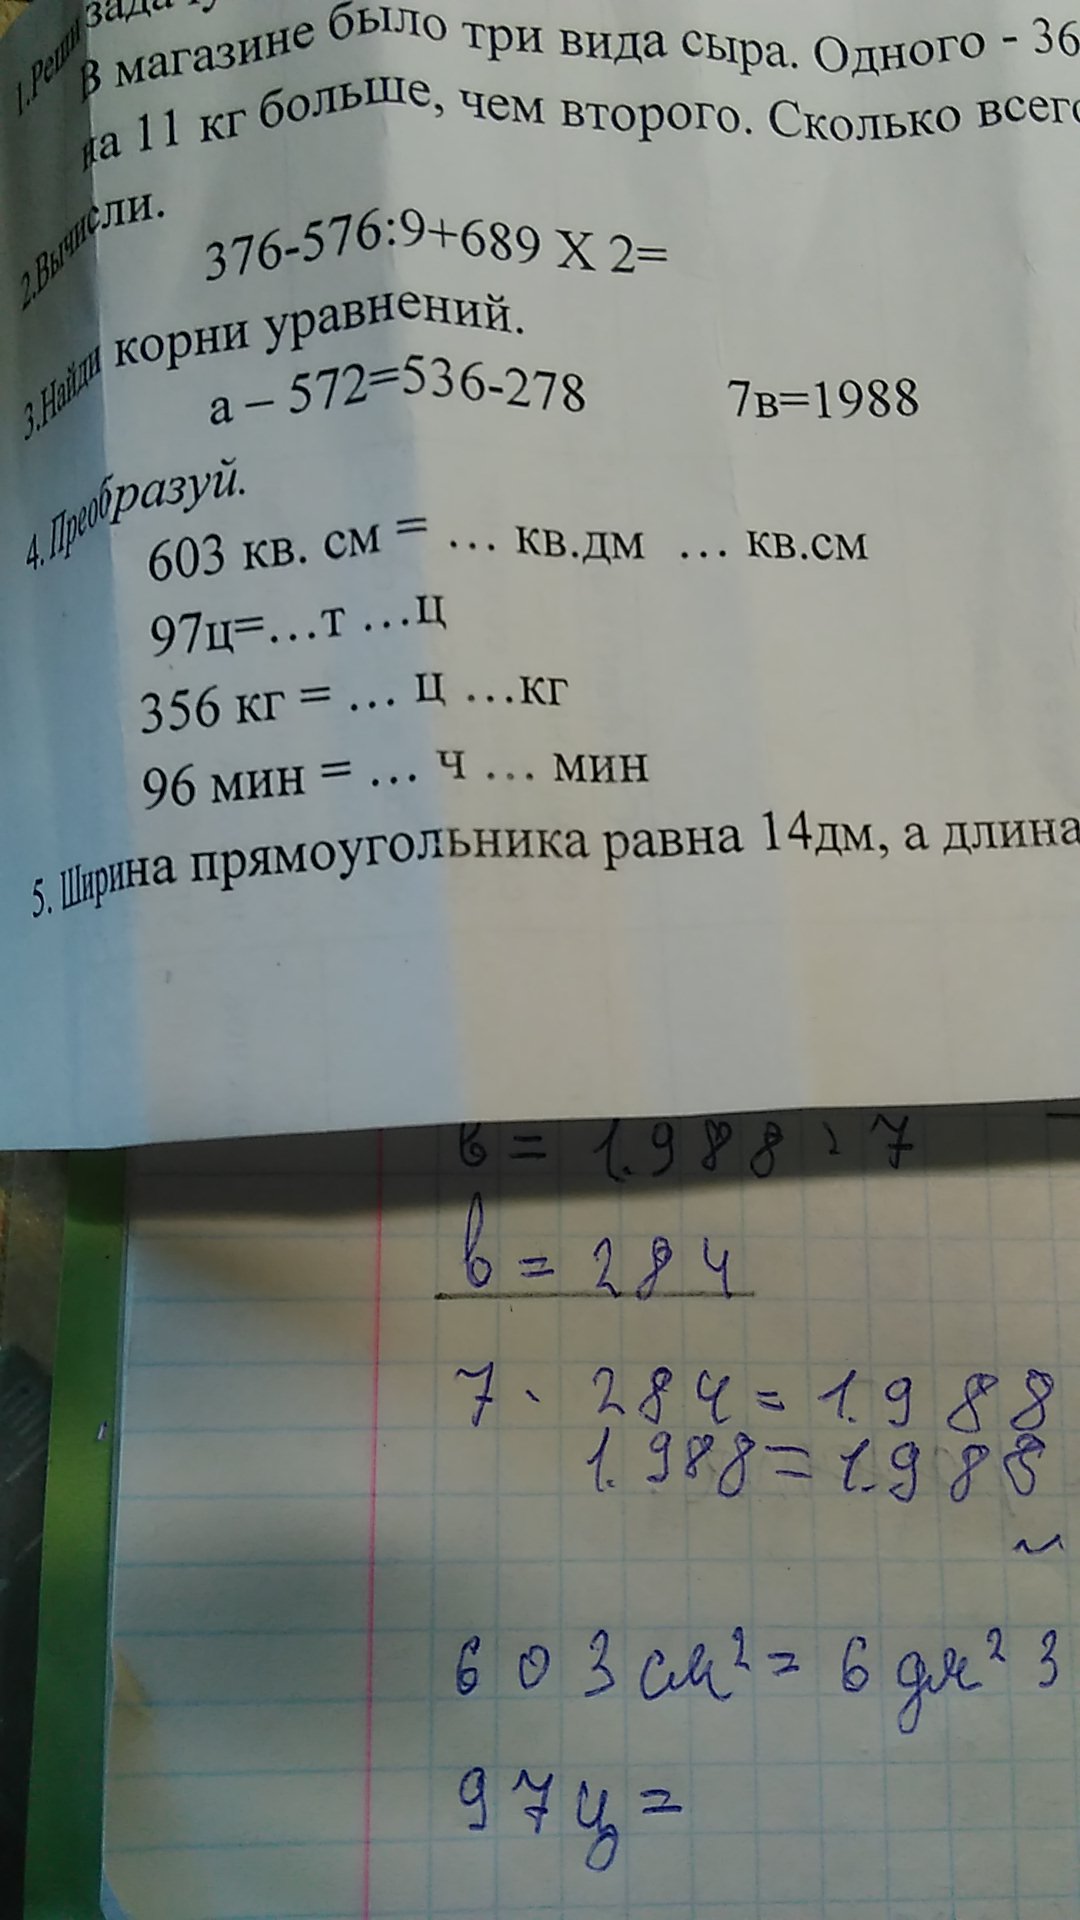 1.Реши зада
В магазине было три вида сыра. Одного - 36
на 11 кг больше, чем второго. Сколько всего
2.Вычисли.
376-576:9+689 X 2=
3.Найди корни уравнений.
а – 572=536-278 7в=1988
4.Преобразуй.
603 кв. см = … кв.дм … кв.см
97ц=…т …ц
356 кг = … ц …кг
96 мин = … ч … мин
5. Ширина прямоугольника равна 14дм, а длина
в = 1.988 : 7
в = 284
7 · 284 = 1.988
1.988 = 1.988
603 см² = 6 дм² 3
97ц =